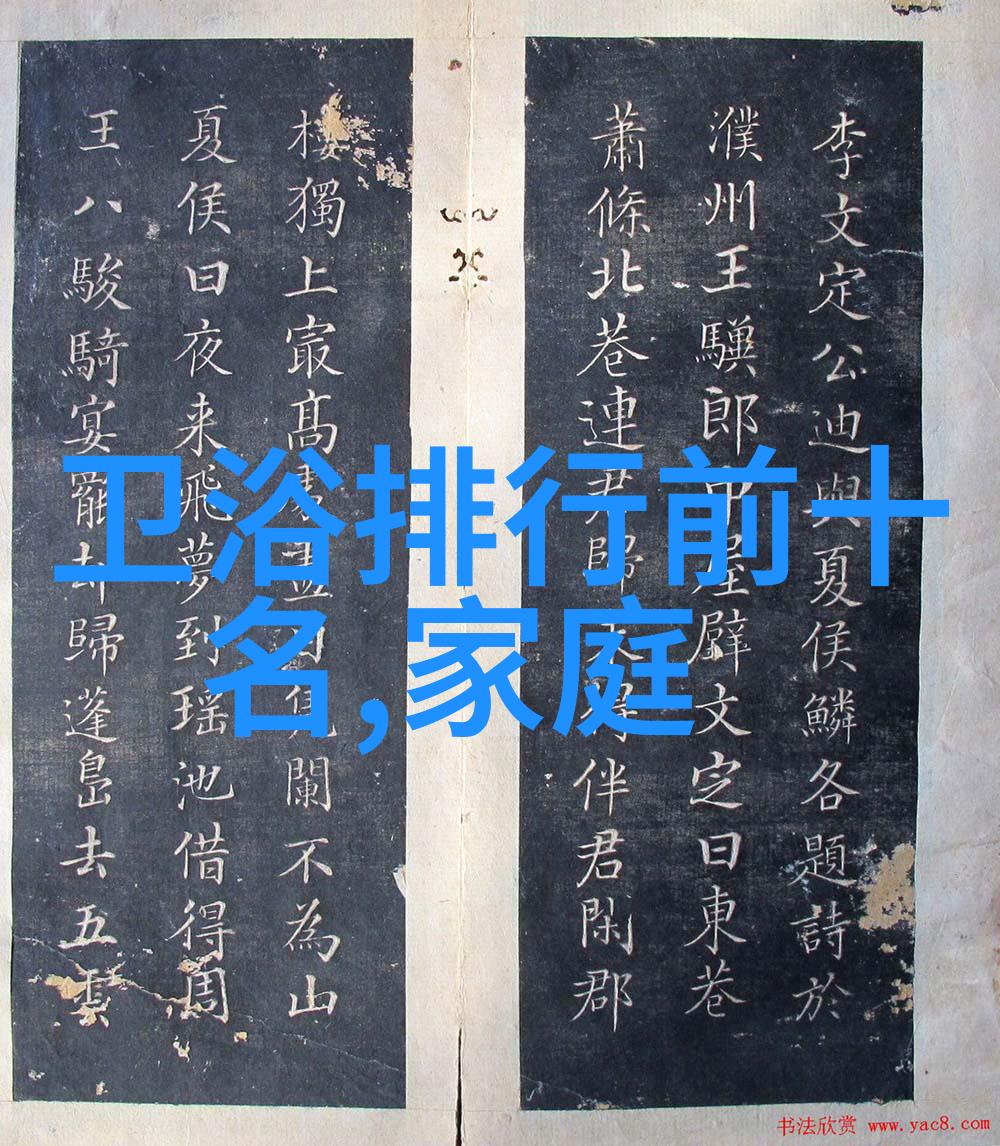 李文定公迪與夏侯鱗各題詩於
濮州王驥郎中屋壁文定曰東巷
蕭條北巷連君歸未得伴君閑郡
樓獨上㝡髙盡日凭闌不為山
夏侯曰夜来飛夢到瑶池借得周
王八駿騎宴罷却歸蓬島去五雲
卫浴排行前十
名,家庭
书法欣赏 www.yac8.com